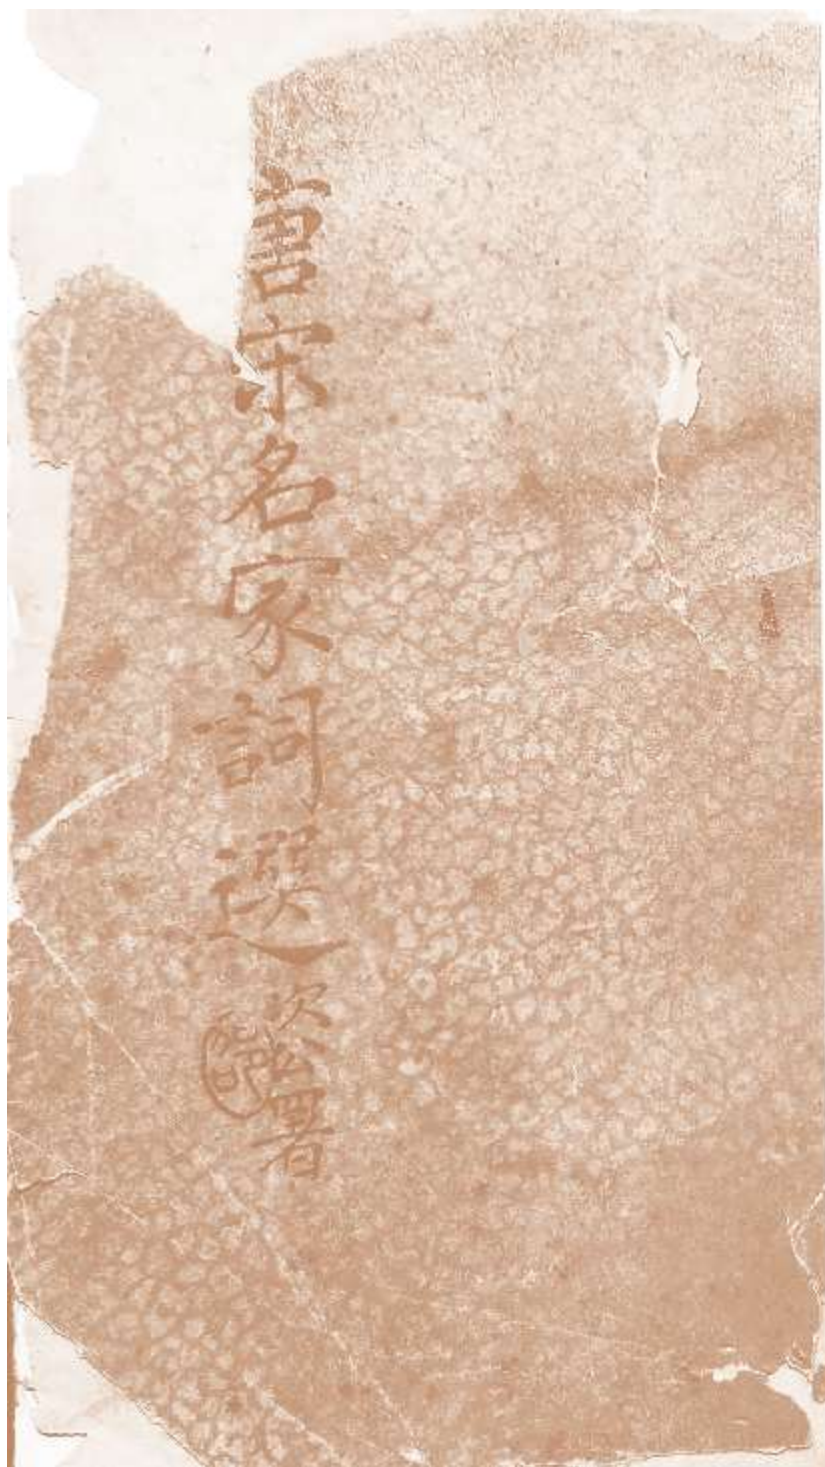 唐宋名家詞選
次公署